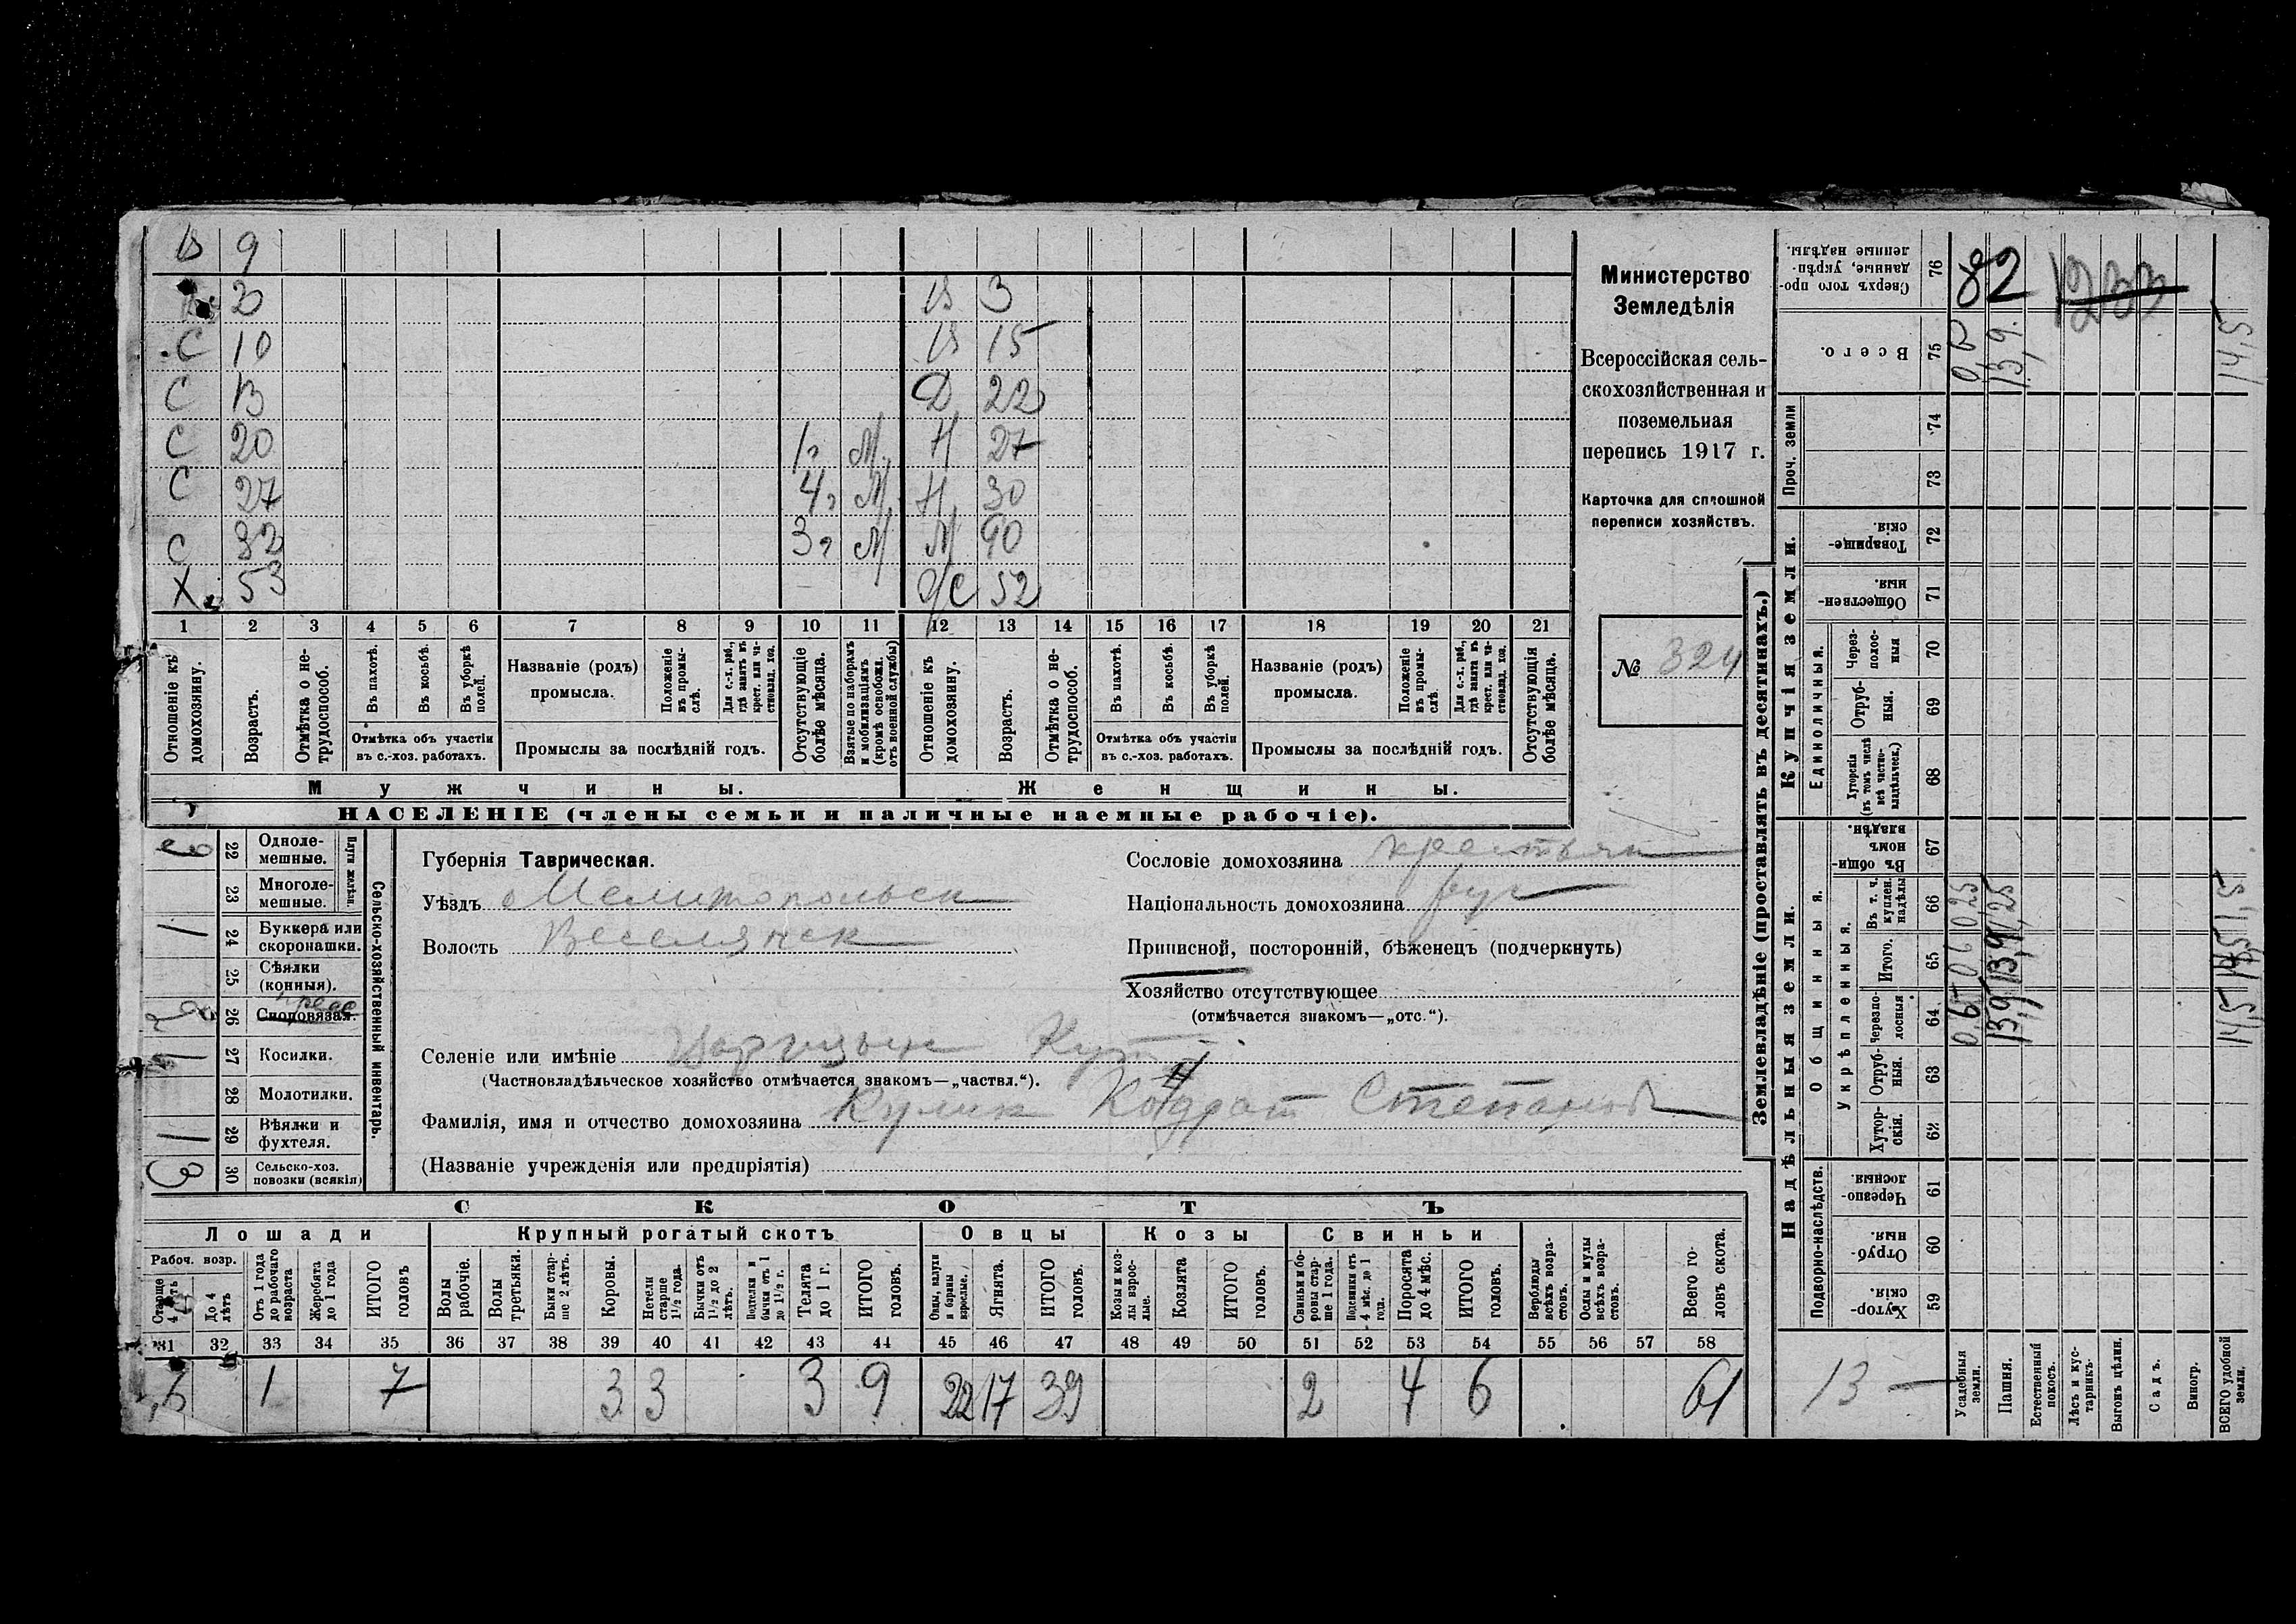 В 9
2 В 3
С 10 В 15
С 13 Д 22
С 20 1 г М Н 27
С 27 4 г М Н 30
С 32 3 г М М 90
Х 53 Ж 52
1 2 3 4 5 6 7 8 9 10 11 12 13 14 15 16 17 18 19 20 21
Отношеніе къ домохозяину.
Возрастъ.
Отмѣтка о нетрудоспособ.
Въ пахотѣ.
Въ косьбѣ.
Въ уборкѣ полей.
Отмѣтка объ участіи
въ с.-хоз. работахъ.
Названіе (родъ)
промысла.
Положеніе въ промыслѣ.
Для с.-х. раб., гдѣ занятъ въ крест. или частновлад. хоз.
Промыслы за послѣдній годъ.
Отсутствующіе болѣе мѣсяца.
Взятые по наборамъ и мобилизаціямъ (кромѣ освобожд. отъ военной службы)
Отношеніе къ домохозяину.
Возрастъ.
Отмѣтка о нетрудоспособ.
Въ пахотѣ.
Въ косьбѣ.
Въ уборкѣ полей.
Отмѣтка объ участіи
въ с.-хоз. работахъ.
Названіе (родъ)
промысла.
Положеніе въ промыслѣ.
Для с.-х. раб., гдѣ занята въ крест. или частновлад. хоз.
Промыслы за послѣдній годъ.
Отсутствующія болѣе мѣсяца.
Мужчины. Женщины.
НАСЕЛЕНІЕ (члены семьи и наличные наемные рабочіе).
Министерство
Земледѣлія
Всероссійская сель-
скохозяйственная и
поземельная
перепись 1917 г.
Карточка для сплошной
переписи хозяйствъ.
№ 324
Сельско-хозяйственный инвентарь.
Плуги желѣзн.
22 Одноле-
мешные.
23 Многоле-
мешные.
1 24 Буккера или
скоропашки.
25 Сѣялки
(конныя).
26 Сноповязал.
1 27 Косилки.
28 Молотилки.
1 29 Вѣялки и
фухтеля.
3 30 Сельско-хоз.
повозки (всякія)
Губернія Таврическая.
Уѣздъ Мелитопольск
Волость Веселянск
Сословіе домохозяина крестьян
Національность домохозяина рус
Приписной, посторонній, бѣженецъ (подчеркнуть)
Хозяйство отсутствующее
(отмѣчается знакомъ—„отс.“).
Селеніе или имѣніе Царицын Кут
(Частновладѣльческое хозяйство отмѣчается знакомъ—„частвл.“).
Фамилія, имя и отчество домохозяина Кулик Кондрат Степанов
(Названіе учрежденія или предпріятія)
СКОТЪ
Лошади Крупный рогатый скотъ Овцы Козы Свиньи
Рабоч. возр.
Старше 4 лѣтъ
До 4 лѣтъ
Отъ 1 года до рабочаго возраста
Жеребята до 1 года
ИТОГО головъ
Волы рабочіе.
Волы третьяки.
Быки старше 2 лѣтъ.
Коровы.
Нетели старше 1½ года.
Бычки отъ 1½ до 2 лѣтъ.
Подтелки и бычки отъ 1 до 1½ г.
Телята до 1 г.
ИТОГО головъ.
Овцы, валухи и бараны взрослые.
Ягнята.
ИТОГО головъ.
Козы и козлы взрослые.
Козлята
ИТОГО головъ.
Свиньи и боровы старше 1 года.
Подсвинки отъ 4 мѣс. до 1 года.
Поросята до 4 мѣс.
ИТОГО головъ.
Верблюды всѣхъ возрастовъ.
Ослы и мулы всѣхъ возрастовъ.
Всего головъ скота.
31 32 33 34 35 36 37 38 39 40 41 42 43 44 45 46 47 48 49 50 51 52 53 54 55 56 57 58
1 7 3 3 3 9 22 17 39 2 4 6 61
Землевладѣніе (проставлять въ десятинахъ.)
Надѣльныя земли. Купчія земли. Проч. земли
Подворно-наслѣдств.
Общинныя.
Укрѣпленныя.
Единоличныя.
Хуторскія. 59
Отрубныя. 60
Черезполосныя. 61
Хуторскія. 62
Отрубныя. 63
Черезполосныя 64
Итого. 65
Въ т. ч. куплен. надѣлы 66
Въ общинномъ владѣн. 67
Хуторскія (въ томъ числѣ всѣ частновладѣльческ.) 68
Отрубныя. 69
Черезполосныя 70
Общественныя. 71
Товарищескія. 72
73
74
Всего. 75
Сверхъ того проданные, укрѣпленные надѣлы. 76
82 1233
13
Усадебныя земли. 0,6 0,6 0,25
Пашня. 13,9 13,9 1,25 13,9
Естественный покосъ.
Лѣсъ и кустарникъ.
Выгонъ цѣлин.
Садъ.
Виногр.
ВСЕГО удобной земли. 14,5 14,5 1,5 14,5